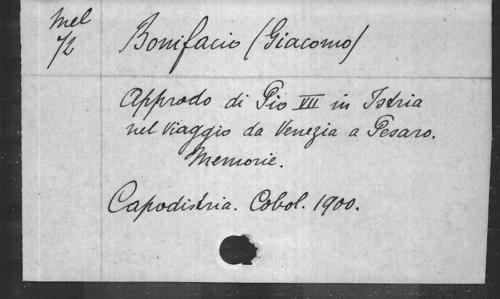 Mel
72
Bonifacio (Giacomo)
Approdo di Pio VII in Istria
nel viaggio da Venezia a Pesaro.
Memorie.
Capodistria. Cobol. 1900.